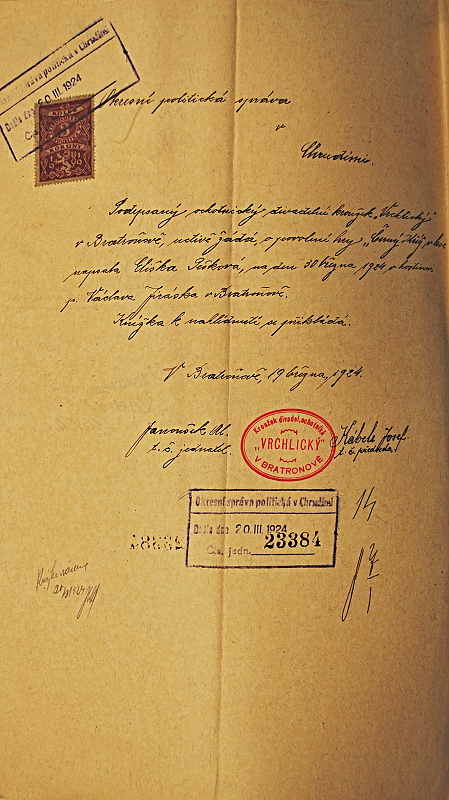 Okresní správa politická v Chrudimi
Došlo dne 20. III. 1924
KOLEK
2
KORUNY
19 19
Okresní politická správa
v
Chrudimi.
Podepsaný ochotnický divadelní kroužek „Vrchlický"
v Bratroňově, uctivě žádá, o povolení hry „Černý
napsala Eliška Pešková, na den 30 března 1924, v hostinci
p. Václava Jiráska v Bratroňově.
Knížka k nahlédnutí se přikládá.
V Bratroňově, 19 března, 1924.
Janoušek Al.
t. č. jednatel.
Kroužek divadel. ochotníků
„VRCHLICKÝ"
V BRATRONOVĚ
Kábele Josef
t. č. předseda
Okresní správa politická v Chrudimi
Došlo dne 20. III. 1924
Čís. jedn. 23384
14